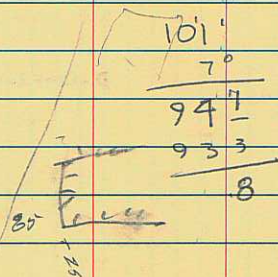 101'
7⁰
947
933
.8
85